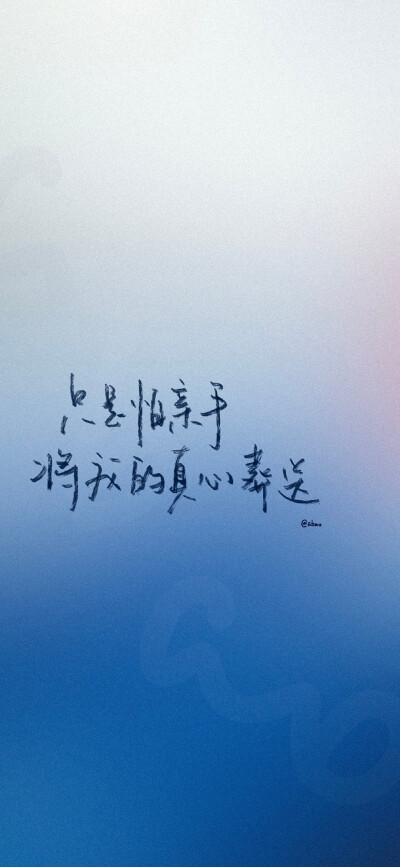 只是怕亲手
将我的真心葬送